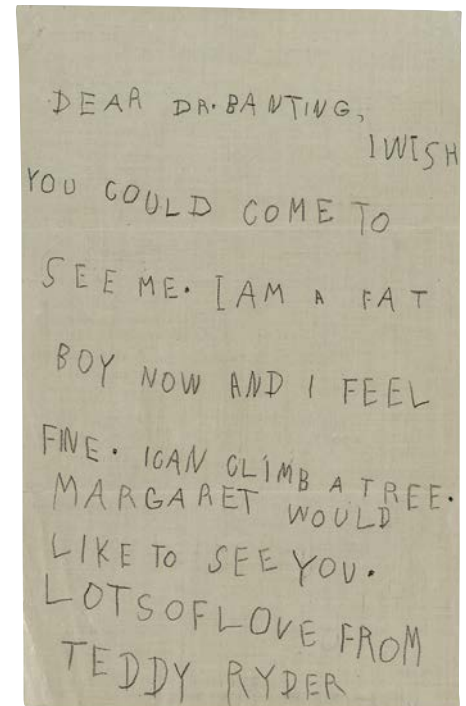 DEAR DR. BANTING,
I WISH
YOU COULD COME TO
SEE ME. I AM A FAT
BOY NOW AND I FEEL
FINE. I CAN CLIMB A TREE.
MARGARET WOULD
LIKE TO SEE YOU.
LOTS OF LOVE FROM
TEDDY RYDER